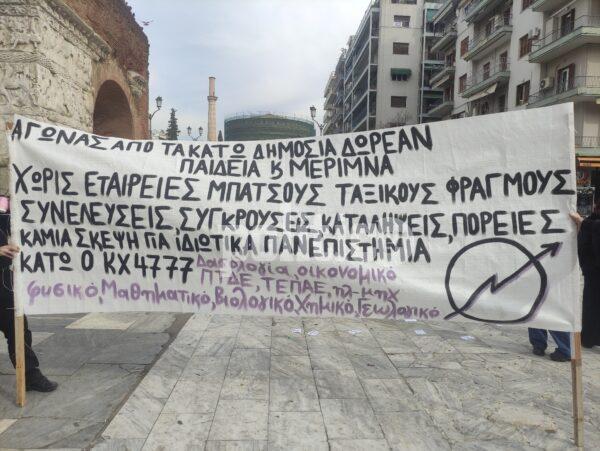 ΑΓΩΝΑΣ ΑΠΟ ΤΑ ΚΑΤΩ ΔΗΜΟΣΙΑ ΔΩΡΕΑΝ
ΠΑΙΔΕΙΑ & ΜΕΡΙΜΝΑ
ΧΩΡΙΣ ΕΤΑΙΡΕΙΕΣ ΜΠΑΤΣΟΥΣ ΤΑΞΙΚΟΥΣ ΦΡΑΓΜΟΥΣ
ΣΥΝΕΛΕΥΣΕΙΣ, ΣΥΓΚΡΟΥΣΕΙΣ, ΚΑΤΑΛΗΨΕΙΣ, ΠΟΡΕΙΕΣ
ΚΑΜΙΑ ΣΚΕΨΗ ΓΙΑ ΙΔΙΩΤΙΚΑ ΠΑΝΕΠΙΣΤΗΜΙΑ
ΚΑΤΩ Ο ΚΧ4777
Δασολογία, οικονομικό
ΠΤΔΕ, ΤΕΠΑΕ, ηλ-μηχ
φυσικό, Μαθηματικό, Βιολογικό, Χημικό, Γεωλογικό